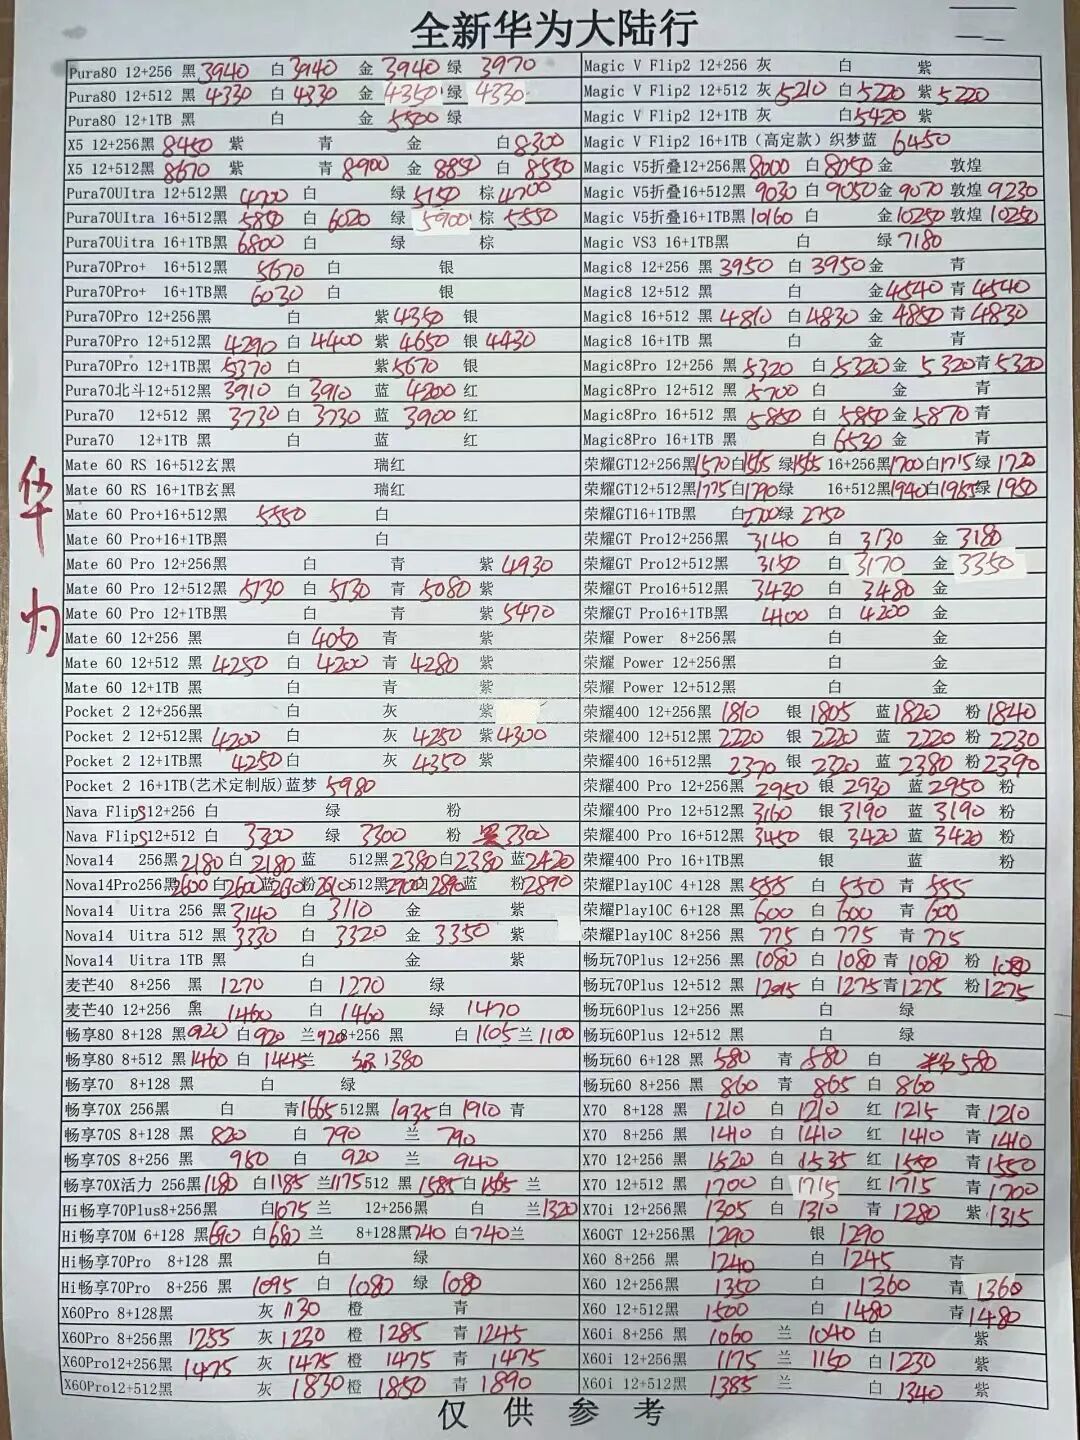 全新华为大陆行
华为
Pura80 12+256 黑 3940 白 3940 金 3940 绿 3970
Pura80 12+512 黑 4330 白 4330 金 4350 绿 4330
Pura80 12+1TB 黑 白 金 5500 绿
X5 12+256黑 8450 紫 青 金 白 8300
X5 12+512黑 8670 紫 青 8900 金 8850 白 8530
Pura70UItra 12+512黑 4700 白 绿 5150 棕 4700
Pura70UItra 16+512黑 5850 白 6020 绿 5900 棕 5550
Pura70Uitra 16+1TB黑 6800 白 绿 棕
Pura70Pro+ 16+512黑 5670 白 银
Pura70Pro+ 16+1TB黑 6030 白 银
Pura70Pro 12+256黑 白 紫 4350 银
Pura70Pro 12+512黑 4290 白 4400 紫 4650 银 4430
Pura70Pro 12+1TB黑 5370 白 紫 5670 银
Pura70北斗12+512黑 3910 白 3910 蓝 4200 红
Pura70 12+512 黑 3730 白 3730 蓝 3900 红
Pura70 12+1TB 黑 白 蓝 红
Mate 60 RS 16+512玄黑 瑞红
Mate 60 RS 16+1TB玄黑 瑞红
Mate 60 Pro+16+512黑 5550 白
Mate 60 Pro+16+1TB黑 白
Mate 60 Pro 12+256黑 白 青 紫 4930
Mate 60 Pro 12+512黑 5130 白 5130 青 5080 紫
Mate 60 Pro 12+1TB黑 白 青 紫 5470
Mate 60 12+256 黑 白 4050 青 紫
Mate 60 12+512 黑 4250 白 4200 青 4280 紫
Mate 60 12+1TB 黑 白 青 紫
Pocket 2 12+256黑 白 灰 紫
Pocket 2 12+512黑 4200 白 灰 4250 紫 4300
Pocket 2 12+1TB黑 4250 白 灰 4350 紫
Pocket 2 16+1TB(艺术定制版)蓝梦 5980
Nava FlipS12+256 白 绿 粉
Nava FlipS12+512 白 3300 绿 3300 粉 黑 3300
Nova14 256黑 2180 白 2180 蓝 512黑 2380 白 2380 蓝 2420
Nova14Pro256黑 2600 白 2600 蓝 粉 2610 512黑 2900 白 2890 蓝 粉 2890
Nova14 Uitra 256 黑 3140 白 3110 金 紫
Nova14 Uitra 512 黑 3330 白 3320 金 3350 紫
Nova14 Uitra 1TB 黑 白 金 紫
麦芒40 8+256 黑 1270 白 1270 绿
麦芒40 12+256 黑 1460 白 1460 绿 1470
畅享80 8+128 黑 920 白 920 兰 920 8+256 黑 白 1105 兰 1100
畅享80 8+512 黑 1460 白 1445 兰 1380
畅享70 8+128 黑 白 绿
畅享70X 256黑 白 青 1665 512黑 1935 白 1910 青
畅享70S 8+128 黑 820 白 790 兰 790
畅享70S 8+256 黑 950 白 920 兰 940
畅享70X活力 256黑 1180 白 1185 兰 1175 512 黑 1585 白 1565 兰
Hi畅享70Plus8+256黑 白 1075 兰 12+256黑 白 兰 1320
Hi畅享70M 6+128 黑 690 白 680 兰 8+128黑 740 白 740 兰
Hi畅享70Pro 8+128 黑 白 绿
Hi畅享70Pro 8+256 黑 1095 白 1080 绿 1080
X60Pro 8+128黑 灰 1130 橙 青
X60Pro 8+256黑 1255 灰 1230 橙 1285 青 1245
X60Pro12+256黑 1475 灰 1475 橙 1475 青 1475
X60Pro12+512黑 灰 1830 橙 1850 青 1890
Magic V Flip2 12+256 灰 白 紫
Magic V Flip2 12+512 灰 5210 白 5220 紫 5220
Magic V Flip2 12+1TB 灰 白 5420 紫
Magic V Flip2 16+1TB（高定款）织梦蓝 6450
Magic V5折叠12+256黑 8000 白 8050 金 敦煌
Magic V5折叠16+512黑 9030 白 9050 金 9070 敦煌 9230
Magic V5折叠16+1TB黑 10160 白 金 10250 敦煌 10250
Magic VS3 16+1TB黑 白 绿 7180
Magic8 12+256 黑 3950 白 3950 金 青
Magic8 12+512 黑 白 金 4540 青 4540
Magic8 16+512 黑 4810 白 4830 金 4850 青 4830
Magic8 16+1TB 黑 白 金 青
Magic8Pro 12+256 黑 5320 白 5320 金 5320 青 5320
Magic8Pro 12+512 黑 5700 白 金 青
Magic8Pro 16+512 黑 5850 白 5850 金 5870 青
Magic8Pro 16+1TB 黑 白 6530 金 青
荣耀GT12+256黑 1570 白 1565 绿 1565 16+256黑 1700 白 1715 绿 1720
荣耀GT12+512黑 1775 白 1790 绿 16+512黑 1940 白 1965 绿 1950
荣耀GT16+1TB黑 白 2700 绿 2750
荣耀GT Pro12+256黑 3140 白 3130 金 3180
荣耀GT Pro12+512黑 3150 白 3170 金 3350
荣耀GT Pro16+512黑 3430 白 3480 金
荣耀GT Pro16+1TB黑 4100 白 4200 金
荣耀 Power 8+256黑 白 金
荣耀 Power 12+256黑 白 金
荣耀 Power 12+512黑 白 金
荣耀400 12+256黑 1810 银 1805 蓝 1820 粉 1840
荣耀400 12+512黑 2220 银 2220 蓝 2220 粉 2230
荣耀400 16+512黑 2370 银 2320 蓝 2380 粉 2390
荣耀400 Pro 12+256黑 2950 银 2930 蓝 2950 粉
荣耀400 Pro 12+512黑 3160 银 3190 蓝 3190 粉
荣耀400 Pro 16+512黑 3450 银 3420 蓝 3420 粉
荣耀400 Pro 16+1TB黑 银 蓝 粉
荣耀Play10C 4+128 黑 555 白 550 青 555
荣耀Play10C 6+128 黑 600 白 600 青 600
荣耀Play10C 8+256 黑 775 白 775 青 775
畅玩70Plus 12+256 黑 1080 白 1080 青 1080 粉 1080
畅玩70Plus 12+512 黑 白 1275 青 1275 粉 1275
畅玩60Plus 12+256 黑 白 绿
畅玩60Plus 12+512 黑 白 绿
畅玩60 6+128 黑 580 青 580 白 580
畅玩60 8+256 黑 860 青 865 白 860
X70 8+128 黑 1210 白 1210 红 1215 青 1210
X70 8+256 黑 1410 白 1410 红 1410 青 1410
X70 12+256 黑 1520 白 1535 红 1550 青 1550
X70 12+512 黑 1700 白 1715 红 1715 青 1700
X70i 12+256黑 1305 白 1310 青 1280 紫 1315
X60GT 12+256黑 1290 银 1290
X60 8+256 黑 1240 白 1245 青
X60 12+256 黑 1350 白 1360 青 1360
X60 12+512黑 1500 白 1480 青 1480
X60i 8+256 黑 1060 兰 1040 白 紫
X60i 12+256黑 1175 兰 1160 白 1230 紫
X60i 12+512黑 1385 兰 白 1340 紫
仅供参考